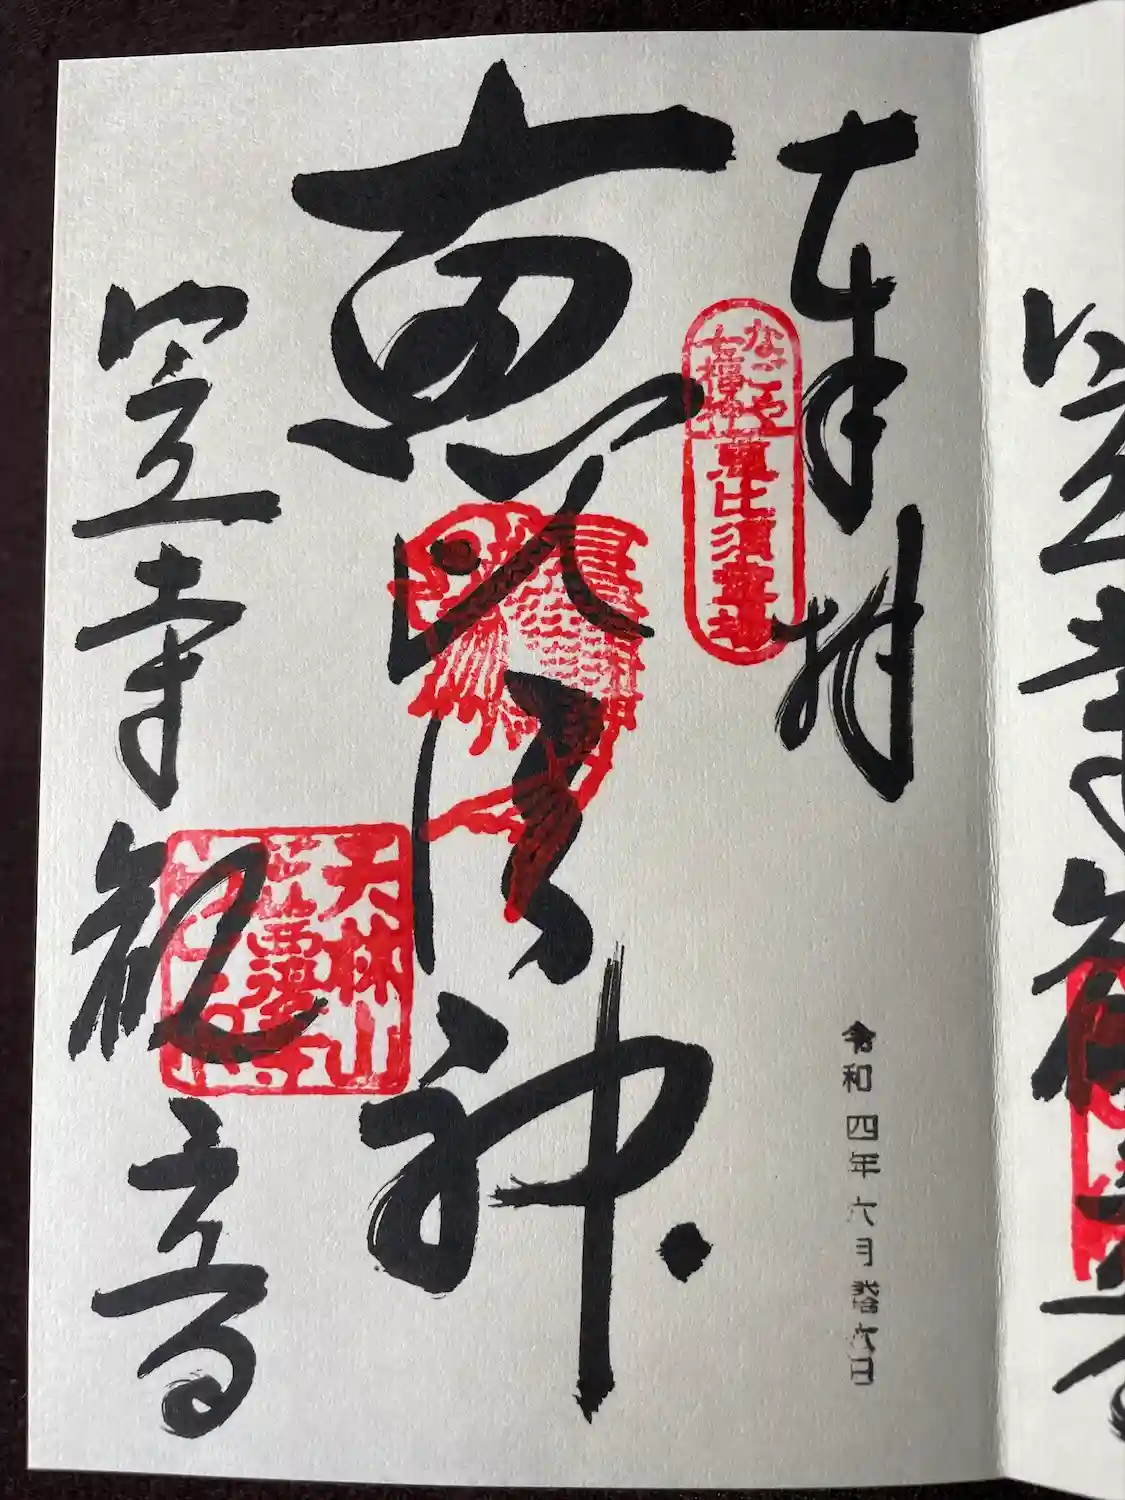 奉拝
なごや
七福神
惠比須霊場
令和四年六月拾六日
恵比須神
天林山
笠覆寺
笠寺観音